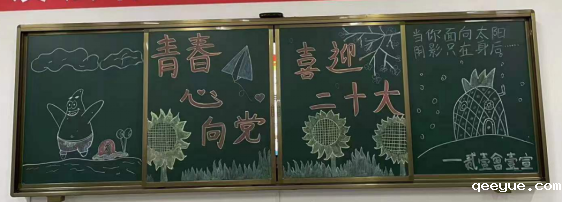 青春
心
向党
喜迎
二十大
当你面向太阳
阴影只在身后……
qeeyue.com